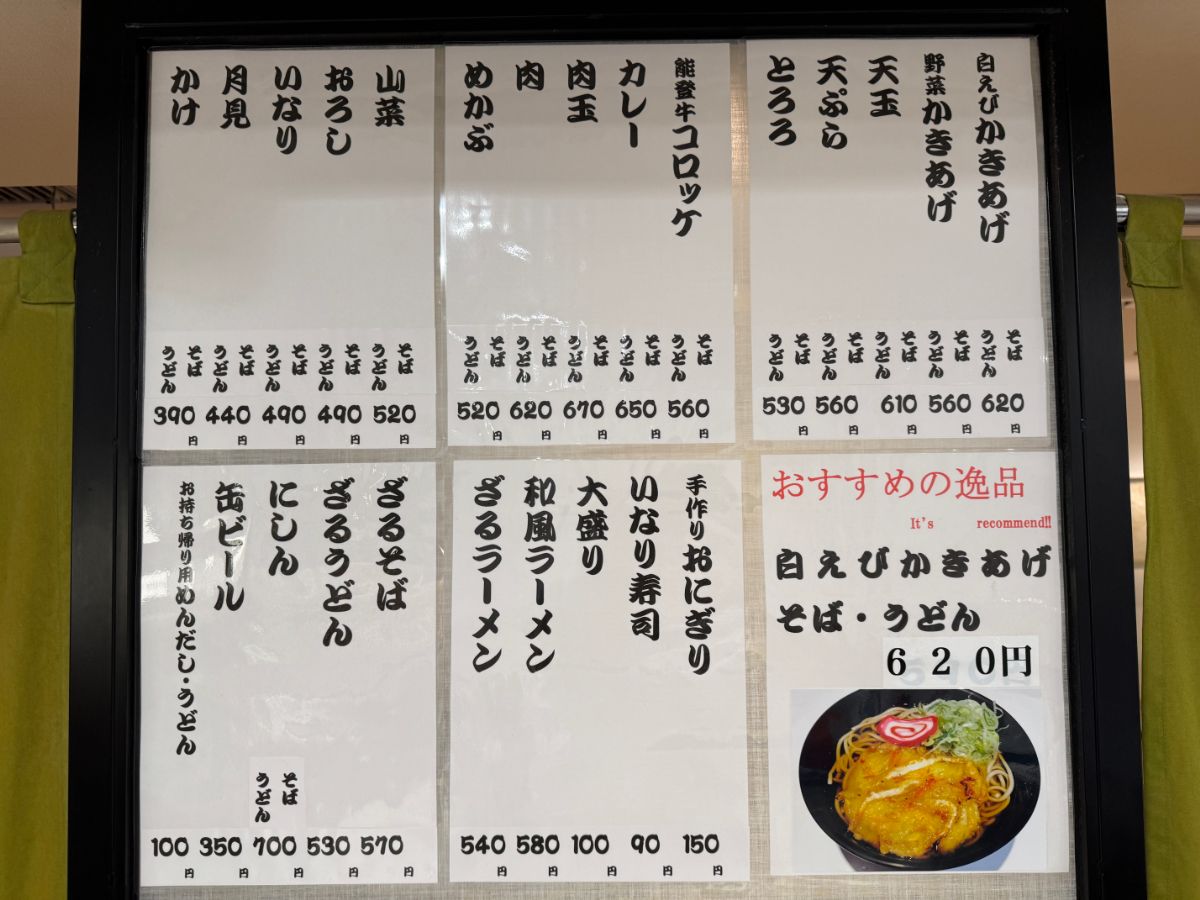 白えびかきあげ
そば
うどん
620円
野菜かきあげ
そば
うどん
560円
天玉
そば
うどん
610円
天ぷら
そば
うどん
560円
とろろ
そば
うどん
530円
能登牛コロッケ
そば
うどん
560円
カレー
そば
うどん
650円
肉玉
そば
うどん
670円
肉
そば
うどん
620円
めかぶ
そば
うどん
520円
山菜
そば
うどん
520円
おろし
そば
うどん
490円
いなり
そば
うどん
490円
月見
そば
うどん
440円
かけ
そば
うどん
390円
おすすめの逸品
It's recommend!!
白えびかきあげ
そば・うどん
620円
手作りおにぎり
150円
いなり寿司
90円
大盛り
100円
和風ラーメン
580円
ざるラーメン
540円
ざるそば
570円
ざるうどん
530円
にしん
そば
うどん
700円
缶ビール
350円
お持ち帰り用めんだし・うどん
100円